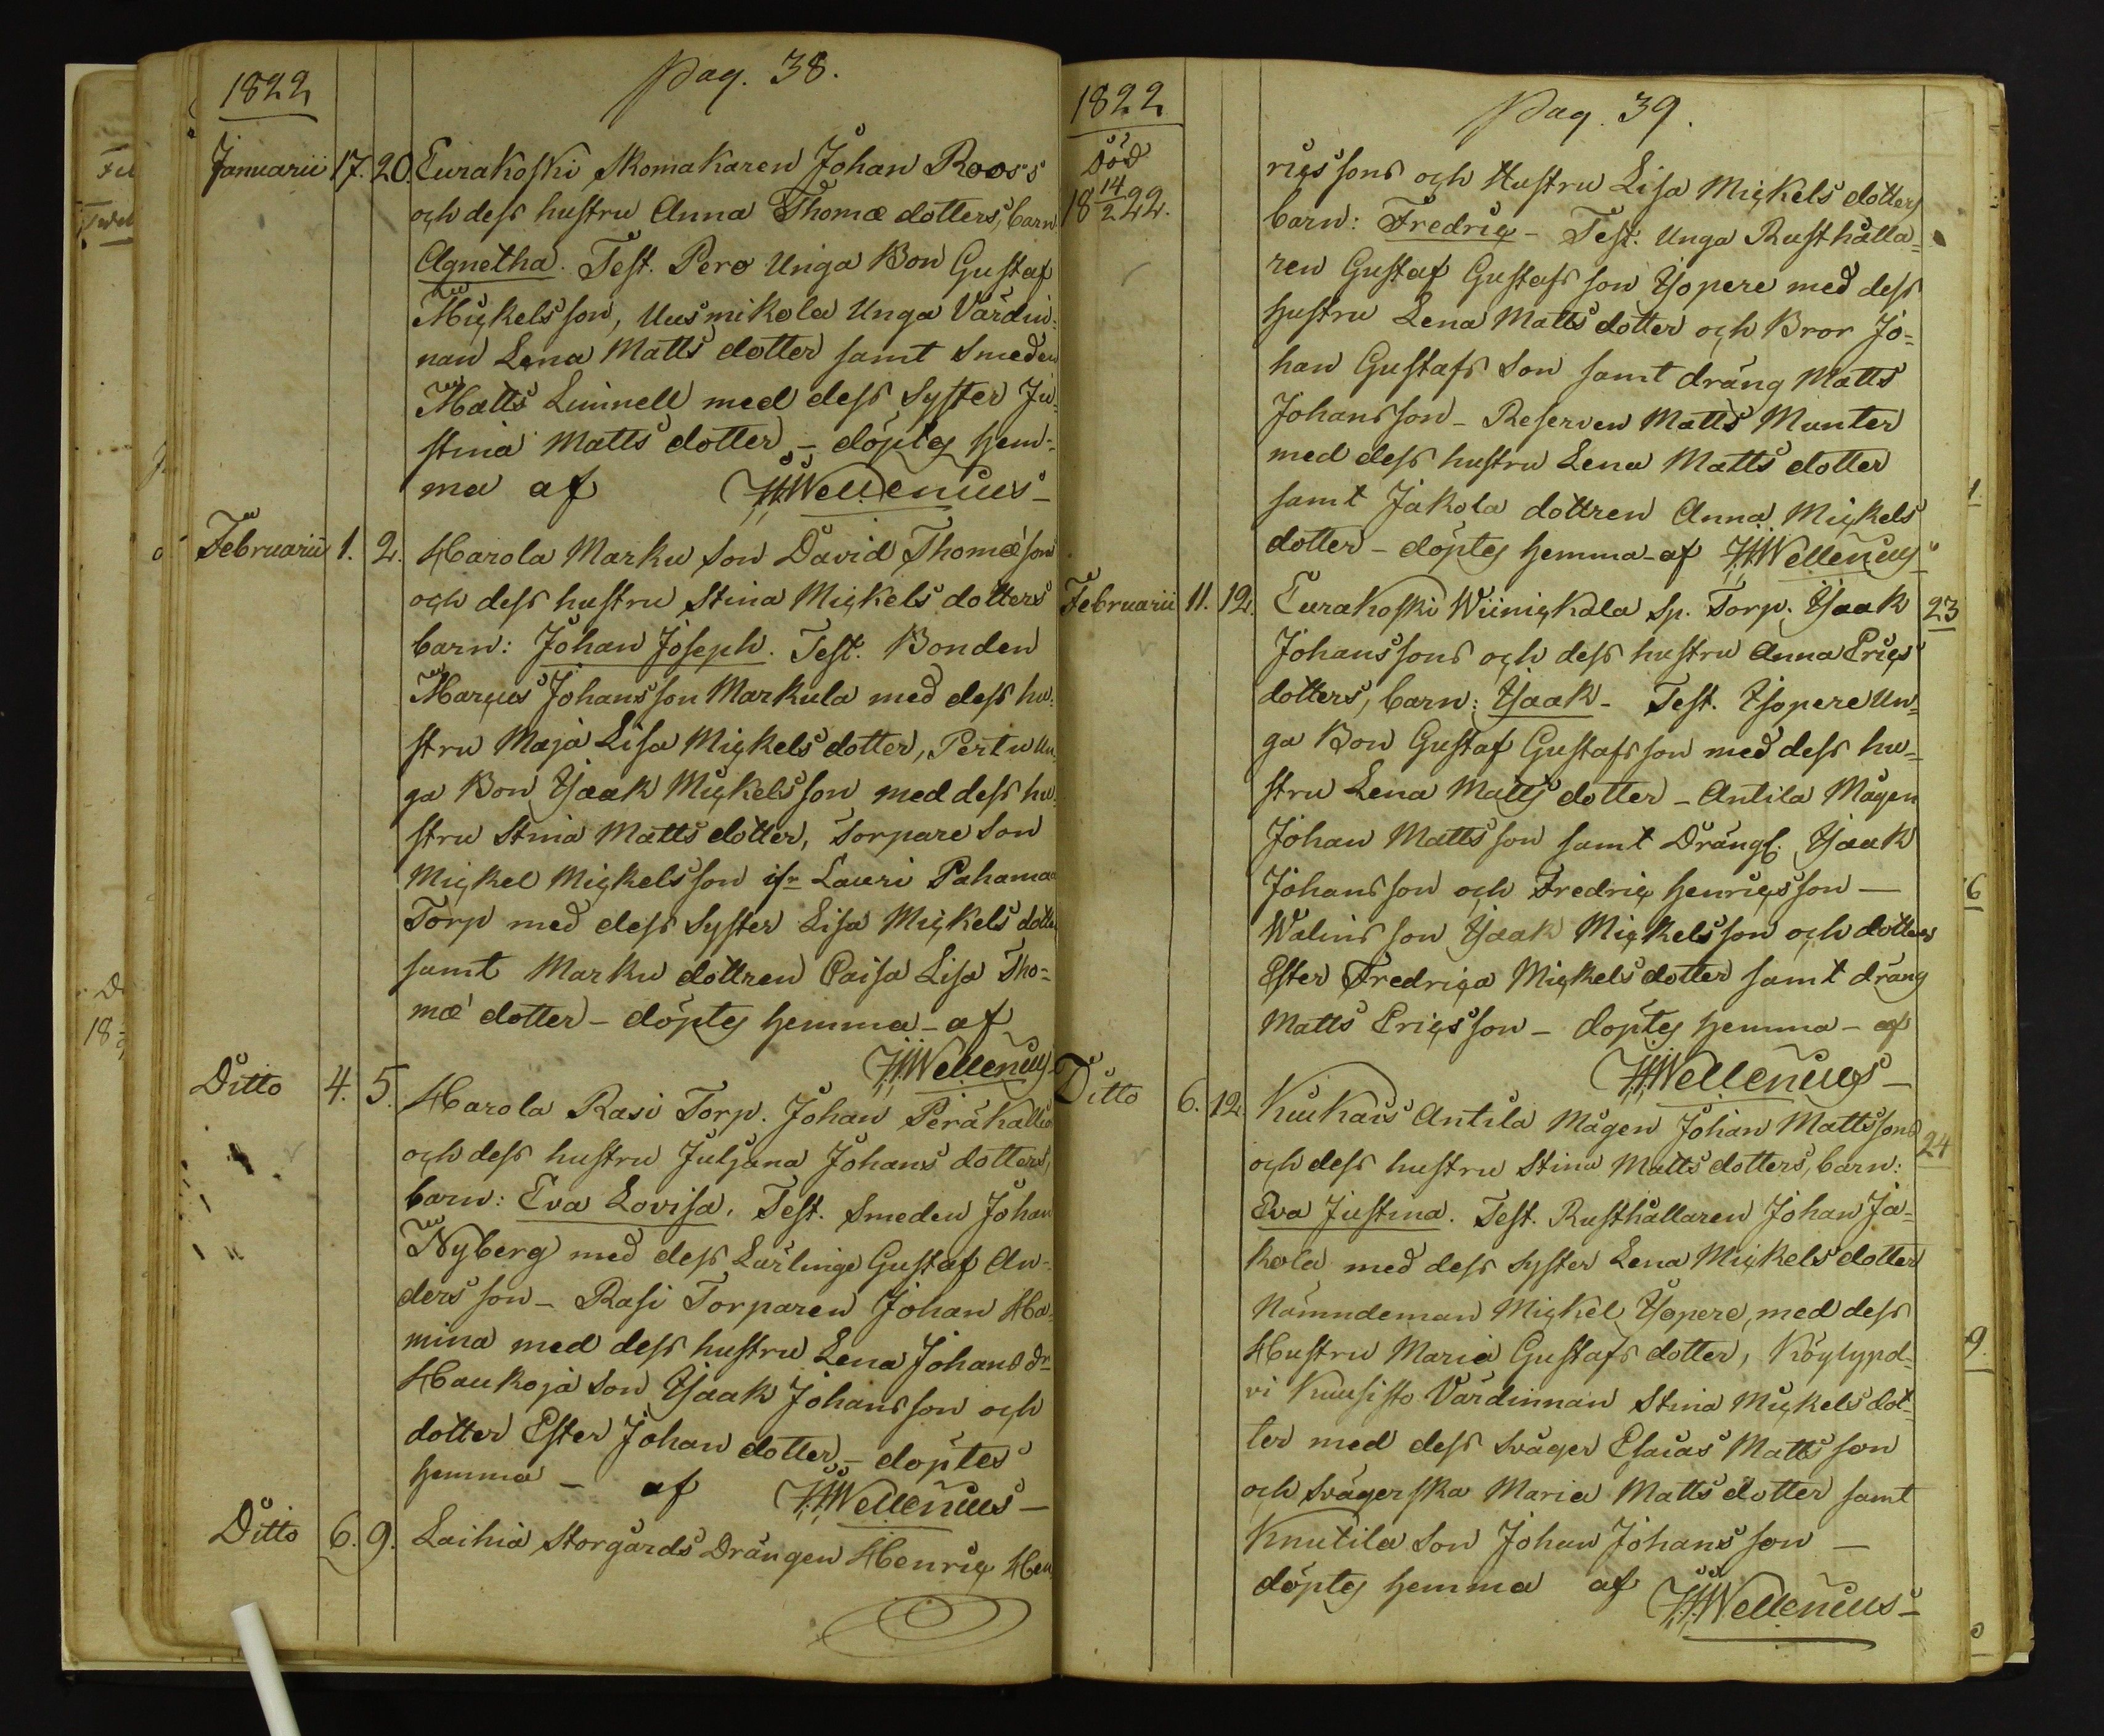 Pag. 38.
1822
Januarii 17. 20. Eurakoski Skomakaren Johan Roos's
och dess hustru Anna Thomæ dotters, barn
Agnetha. Test. Pero Unga Bon Gustaf
Mickelsson, Uusmikola Unga Värdin-
nan Lena Matts dotter samt Smeden
Matts Linnell med dess Syster Ju-
stina Matts dotter – döptes hem-
ma af HWellenius –
Februarii 1. 2. Harola Marku Son David Thomæ son
och dess hustru Stina Mickels dotters
barn: Johan Joseph. Test. Bonden
Marcus Johansson Markula med dess hu-
stru Maja Lisa Mickels dotter, Pertu Un-
ga Bon Isaak Mickelsson med dess hu-
stru Stina Matts dotter, Torpare Son
Mickel Mickelsson ifr. Lauri Pahamaa
Torp med dess Syster Lisa Mickels dotter
samt Marku dottren Caisa Lisa Tho-
mæ dotter – döptes hemma – af
HWellenius
Ditto 4. 5. Harola Rasi Torp. Johan Peräkallio
och dess hustru Juljana Johans dotters,
barn: Eva Lovisa. Test. Smeden Johan
Nyberg med dess Lärlinge Gustaf An-
ders son – Rasi Torparen Johan Ha-
mina med dess hustru Lena Johans dr
Haukoja Son Isaak Johansson och
dotter Ester Johan dotter – döptes
hemma – af HWellenius –
Ditto 6. 9. Laihia Storgårds Drängen Henric Hen
Pag. 39.
1822
död
18 14/2 22.
rics sons och Hustru Lisa Mickels dotters
barn: Fredric – Test. Unga Rusthålla-
ren Gustaf Gustafs son Isopere med dess
hustru Lena Matts dotter och Bror Jo-
han Gustafs Son samt dräng Matts
Johansson – Reserven Matts Munter
med dess hustru Lena Matts dotter
samt Jakola dottren Anna Mickels
dotter – döptes hemma – af HWellenius
Februarii 11. 12. Eurakoski Wiinickala Sp. Torp. Isaak 23
Johanssons och dess hustru Anna Erics
dotters, barn: Isaak – Test. Isopere Un-
ga Bon Gustaf Gustafsson med dess hu-
stru Lena Matts dotter – Antila Mågen
Johan Matts son samt Drängs. Isaak
Johansson och Fredric Henricsson –
Walins son Isaak Mickelsson och dotters
Ester Fredrica Mickels dotter samt dräng
Matts Ericsson – döptes hemma – af
HWellenius –
Ditto 6. 12. Kiukais Antila Mågen Johan Mattssons 24
och dess hustru Stina Matts dotters, barn:
Eva Justina. Test. Rusthållaren Johan Ja-
kola med dess Syster Lena Mickels dotter
Nämndeman Mickel Isopere, med dess
Hustru Maria Gustafs dotter, Köylypol-
vi Kuusisto Värdinnan Stina Mickels dot-
ter med dess Svåger Esaias Matts son
och Svägerska Maria Matts dotter samt
Knutila Son Johan Johans son –
döptes hemma af HWellenius –